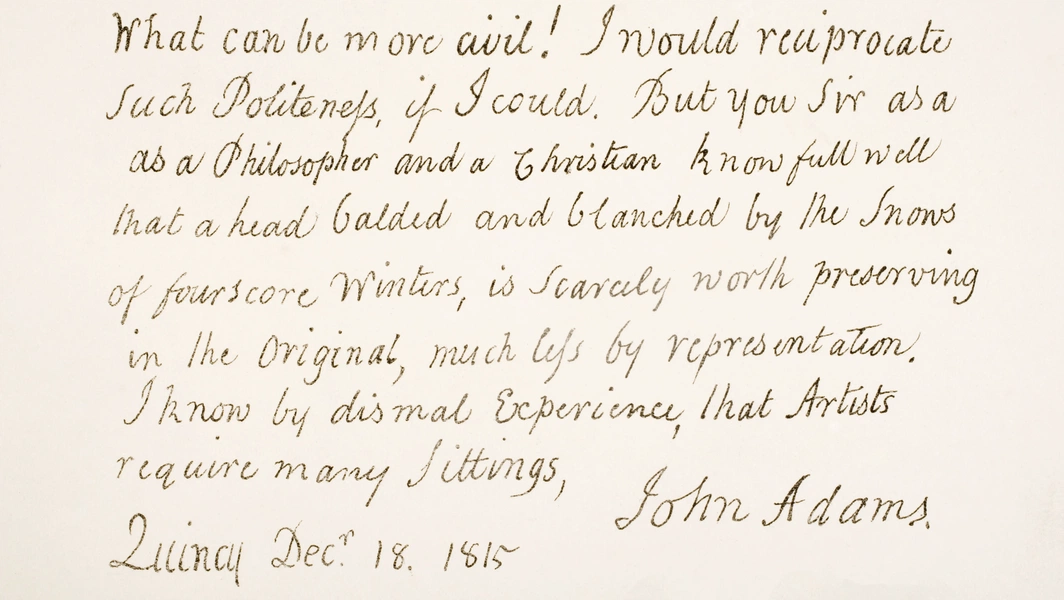 What can be more civil! I would reciprocate
Such Politeneſs, if I could. But you Sir as a
as a Philosopher and a Christian know full well
that a head balded and blanched by the Snows
of fourscore Winters, is Scarcely worth preserving
in the Original, much leſs by representation.
I know by dismal Experience, that Artists
require many Sittings,
John Adams.
Quincy Decr. 18. 1815